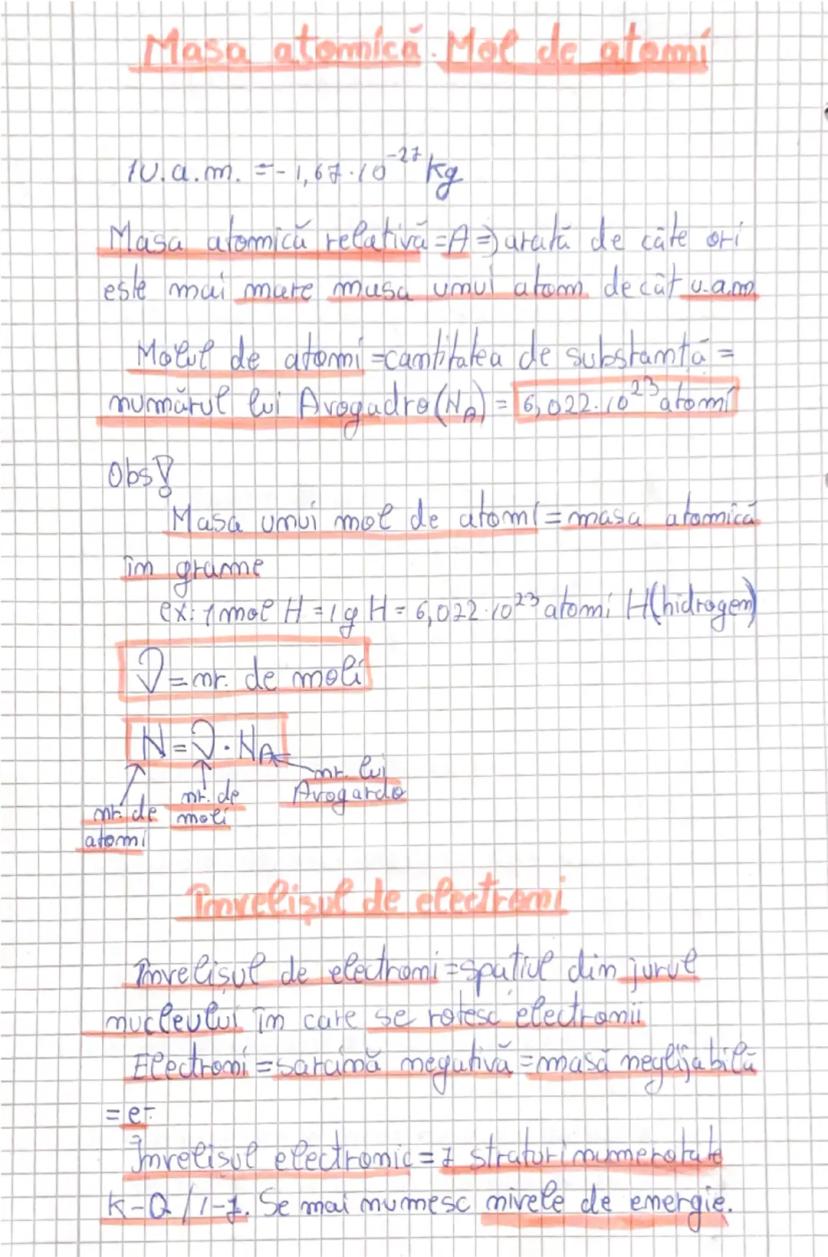 Masa atomică. Mol de atomi
1U.a.m. = - 1,67·10⁻²⁷ kg
Masa atomică relativă=A⇒arată de câte ori
este mai mare masa unui atom decât u.a.m
Molul de atomi=cantitatea de substanță=
numărul lui Avogadro(N_A) = 6,022·10²³ atomi
Obs!
Masa unui mol de atomi=masa atomică
în grame
ex: 1 mol H = 1g H = 6,022·10²³ atomi H(hidrogen)
ν=nr. de moli
N=ν·N_A
nr. lui
Avogardo
nr. de
moli
nr. de
atomi
Învelișul de electroni
Învelișul de electroni=spațiul din jurul
nucleului în care se rotesc electronii
Electroni=sarcină negativă=masă neglijabilă
=e-
Învelisul electronic=7 straturi numerotate
K-Q/1-7. Se mai numesc nivele de energie.